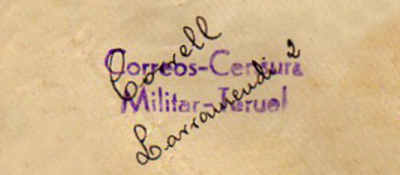 Correos-Censura
Militar-Teruel
Correll
Larramendi 2